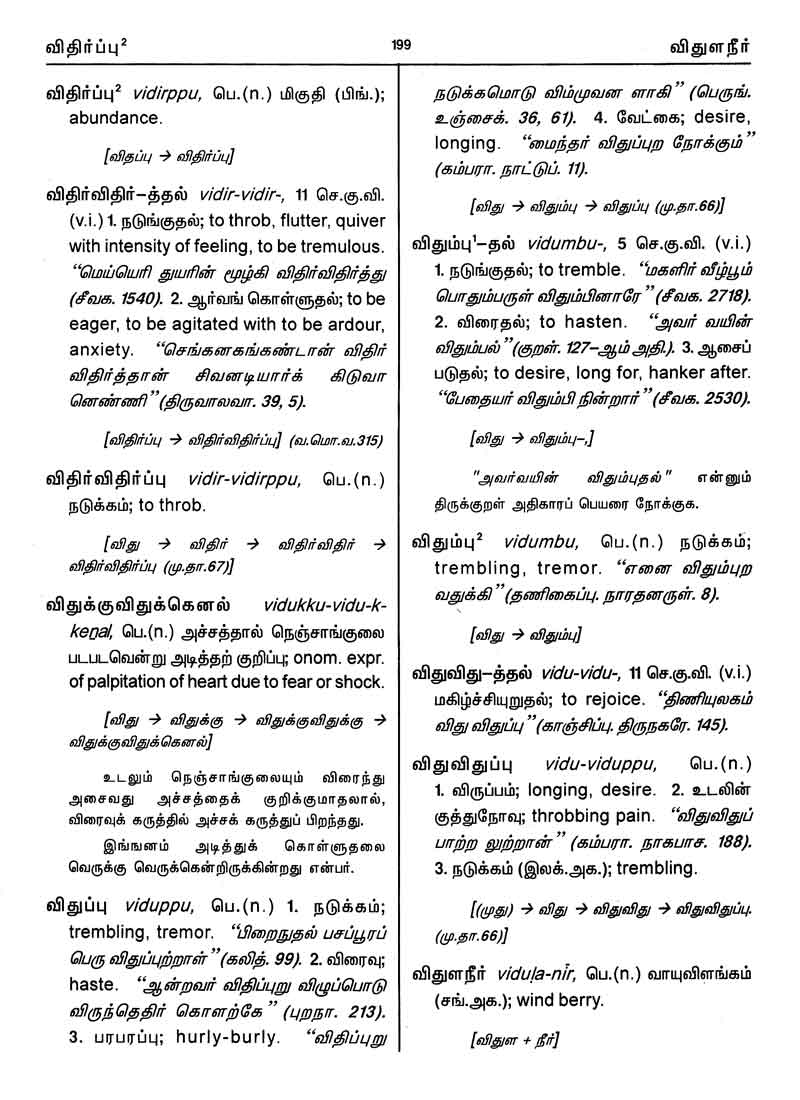 விதிர்ப்பு² 199 விதுளநீர்
விதிர்ப்பு² vidirppu, பெ.(n.) மிகுதி (பிங்.);
abundance.
[விதப்பு → விதிர்ப்பு]
விதிர்விதிர்–த்தல் vidir-vidir-, 11 செ.கு.வி.
(v.i.) 1. நடுங்குதல்; to throb, flutter, quiver
with intensity of feeling, to be tremulous.
“மெய்யெரி துயரின் மூழ்கி விதிர்விதிர்த்து
(சீவக. 1540). 2. ஆர்வங் கொள்ளுதல்; to be
eager, to be agitated with to be ardour,
anxiety. “செங்கனகங்கண்டான் விதிர்
விதிர்த்தான் சிவனடியார்க் கிடுவா
னெண்ணி” (திருவாலவா. 39, 5).
[விதிர்ப்பு → விதிர்விதிர்ப்பு] (வ.மொ.வ.315)
விதிர்விதிர்ப்பு vidir-vidirppu, பெ.(n.)
நடுக்கம்; to throb.
[விது → விதிர் → விதிர்விதிர் →
விதிர்விதிர்ப்பு (மு.தா.67)]
விதுக்குவிதுக்கெனல் vidukku-vidu-k-
keṉal, பெ.(n.) அச்சத்தால் நெஞ்சாங்குலை
படபடவென்று அடித்தற் குறிப்பு; onom. expr.
of palpitation of heart due to fear or shock.
[விது → விதுக்கு → விதுக்குவிதுக்கு →
விதுக்குவிதுக்கெனல்]
உடலும் நெஞ்சாங்குலையும் விரைந்து
அசைவது அச்சத்தைக் குறிக்குமாதலால்,
விரைவுக் கருத்தில் அச்சக் கருத்துப் பிறந்தது.
இங்ஙனம் அடித்துக் கொள்ளுதலை
வெருக்கு வெருக்கென்றிருக்கின்றது என்பர்.
விதுப்பு viduppu, பெ.(n.) 1. நடுக்கம்;
trembling, tremor. “பிறைநுதல் பசப்பூரப்
பெரு விதுப்புற்றாள்” (கலித். 99). 2. விரைவு;
haste. “ஆன்றவர் விதிப்புறு விழுப்பொடு
விருந்தெதிர் கொளற்கே” (புறநா. 213).
3. பரபரப்பு; hurly-burly. “விதிப்புறு
நடுக்கமொடு விம்முவன ளாகி” (பெருங்.
உஞ்சைக். 36, 61). 4. வேட்கை; desire,
longing. “மைந்தர் விதுப்புற நோக்கும்”
(கம்பரா. நாட்டுப். 11).
[விது → விதும்பு → விதுப்பு (மு.தா.66)]
விதும்பு¹–தல் vidumbu-, 5 செ.கு.வி. (v.i.)
1. நடுங்குதல்; to tremble. “மகளிர் வீழ்பூம்
பொதும்பருள் விதும்பினாரே” (சீவக. 2718).
2. விரைதல்; to hasten. “அவர் வயின்
விதும்பல்” (குறள். 127–ஆம் அதி.). 3. ஆசைப்
படுதல்; to desire, long for, hanker after.
“பேதையர் விதும்பி நின்றார்” (சீவக. 2530).
[விது → விதும்பு–,]
"அவர்வயின் விதும்புதல்" என்னும்
திருக்குறள் அதிகாரப் பெயரை நோக்குக.
விதும்பு² vidumbu, பெ.(n.) நடுக்கம்;
trembling, tremor. “எனை விதும்புற
வதுக்கி” (தணிகைப்பு. நாரதனருள். 8).
[விது → விதும்பு]
விதுவிது–த்தல் vidu-vidu-, 11 செ.கு.வி. (v.i.)
மகிழ்ச்சியுறுதல்; to rejoice. “திணியுலகம்
விது விதுப்பு” (காஞ்சிப்பு. திருநகரே. 145).
விதுவிதுப்பு vidu-viduppu, பெ.(n.)
1. விருப்பம்; longing, desire. 2. உடலின்
குத்துநோவு; throbbing pain. “விதுவிதுப்
பாற்ற லுற்றான்” (கம்பரா. நாகபாச. 188).
3. நடுக்கம் (இலக்.அக.); trembling.
[(முது) → விது → விதுவிது → விதுவிதுப்பு.
(மு.தா.66)]
விதுளநீர் viduḷa-nīr, பெ.(n.) வாயுவிளங்கம்
(சங்.அக.); wind berry.
[விதுள + நீர்]